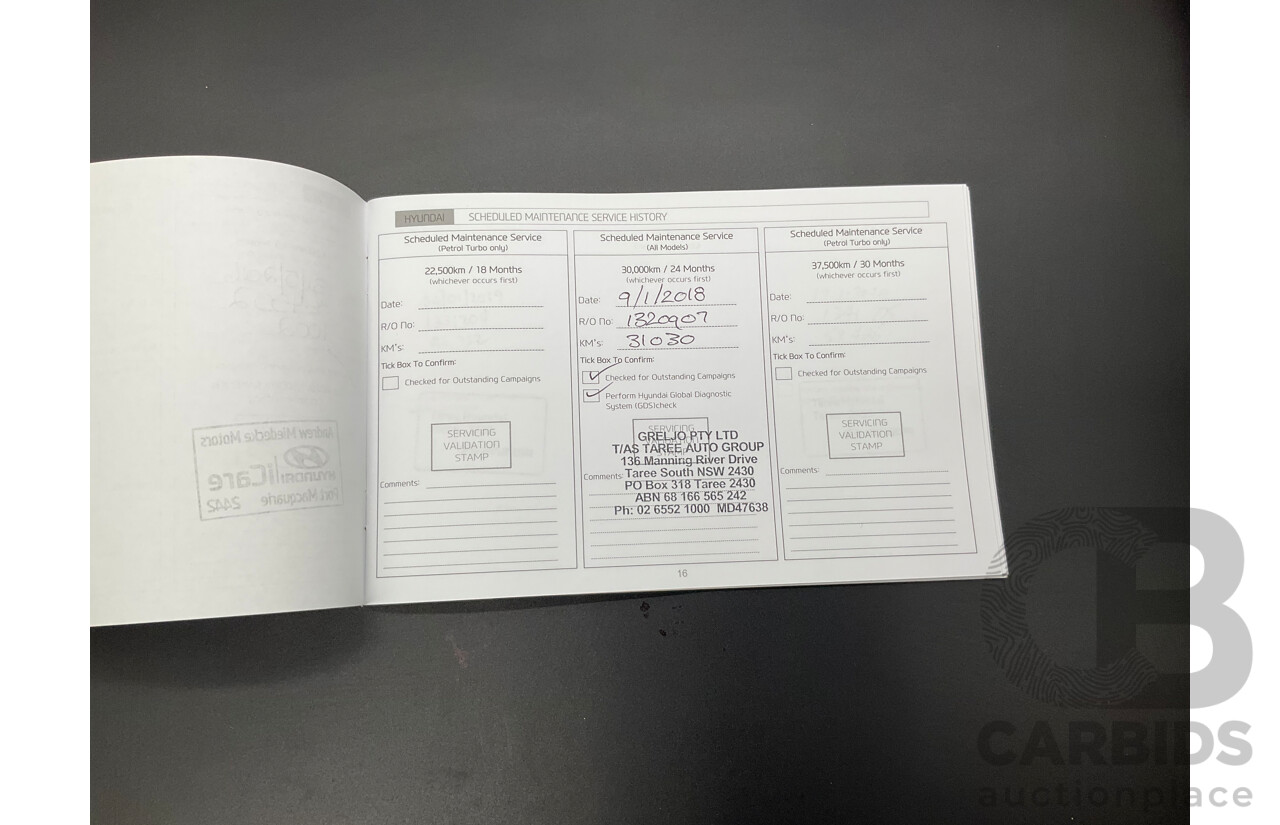 HYUNDAI SCHEDULED MAINTENANCE SERVICE HISTORY
Scheduled Maintenance Service
(Petrol Turbo only)
22,500km / 18 Months
(whichever occurs first)
Date:
R/O No:
KM's:
Tick Box To Confirm:
Checked for Outstanding Campaigns
SERVICING
VALIDATION
STAMP
Comments:
Scheduled Maintenance Service
(All Models)
30,000km / 24 Months
(whichever occurs first)
Date: 9/1/2018
R/O No: 1320907
KM's: 31030
Tick Box To Confirm:
Checked for Outstanding Campaigns
Perform Hyundai Global Diagnostic
System (GDS)check
SERVICING
GRELJO PTY LTD
T/AS TAREE AUTO GROUP
136 Manning River Drive
Comments: Taree South NSW 2430
PO Box 318 Taree 2430
ABN 68 166 565 242
Ph: 02 6552 1000 MD47638
Scheduled Maintenance Service
(Petrol Turbo only)
37,500km / 30 Months
(whichever occurs first)
Date:
R/O No:
KM's:
Tick Box To Confirm:
Checked for Outstanding Campaigns
SERVICING
VALIDATION
STAMP
Comments:
16
Andrew Miedecke Motors
HYUNDAI iCare
Port Macquarie 2442
CB
CARBIDS
auctionplace